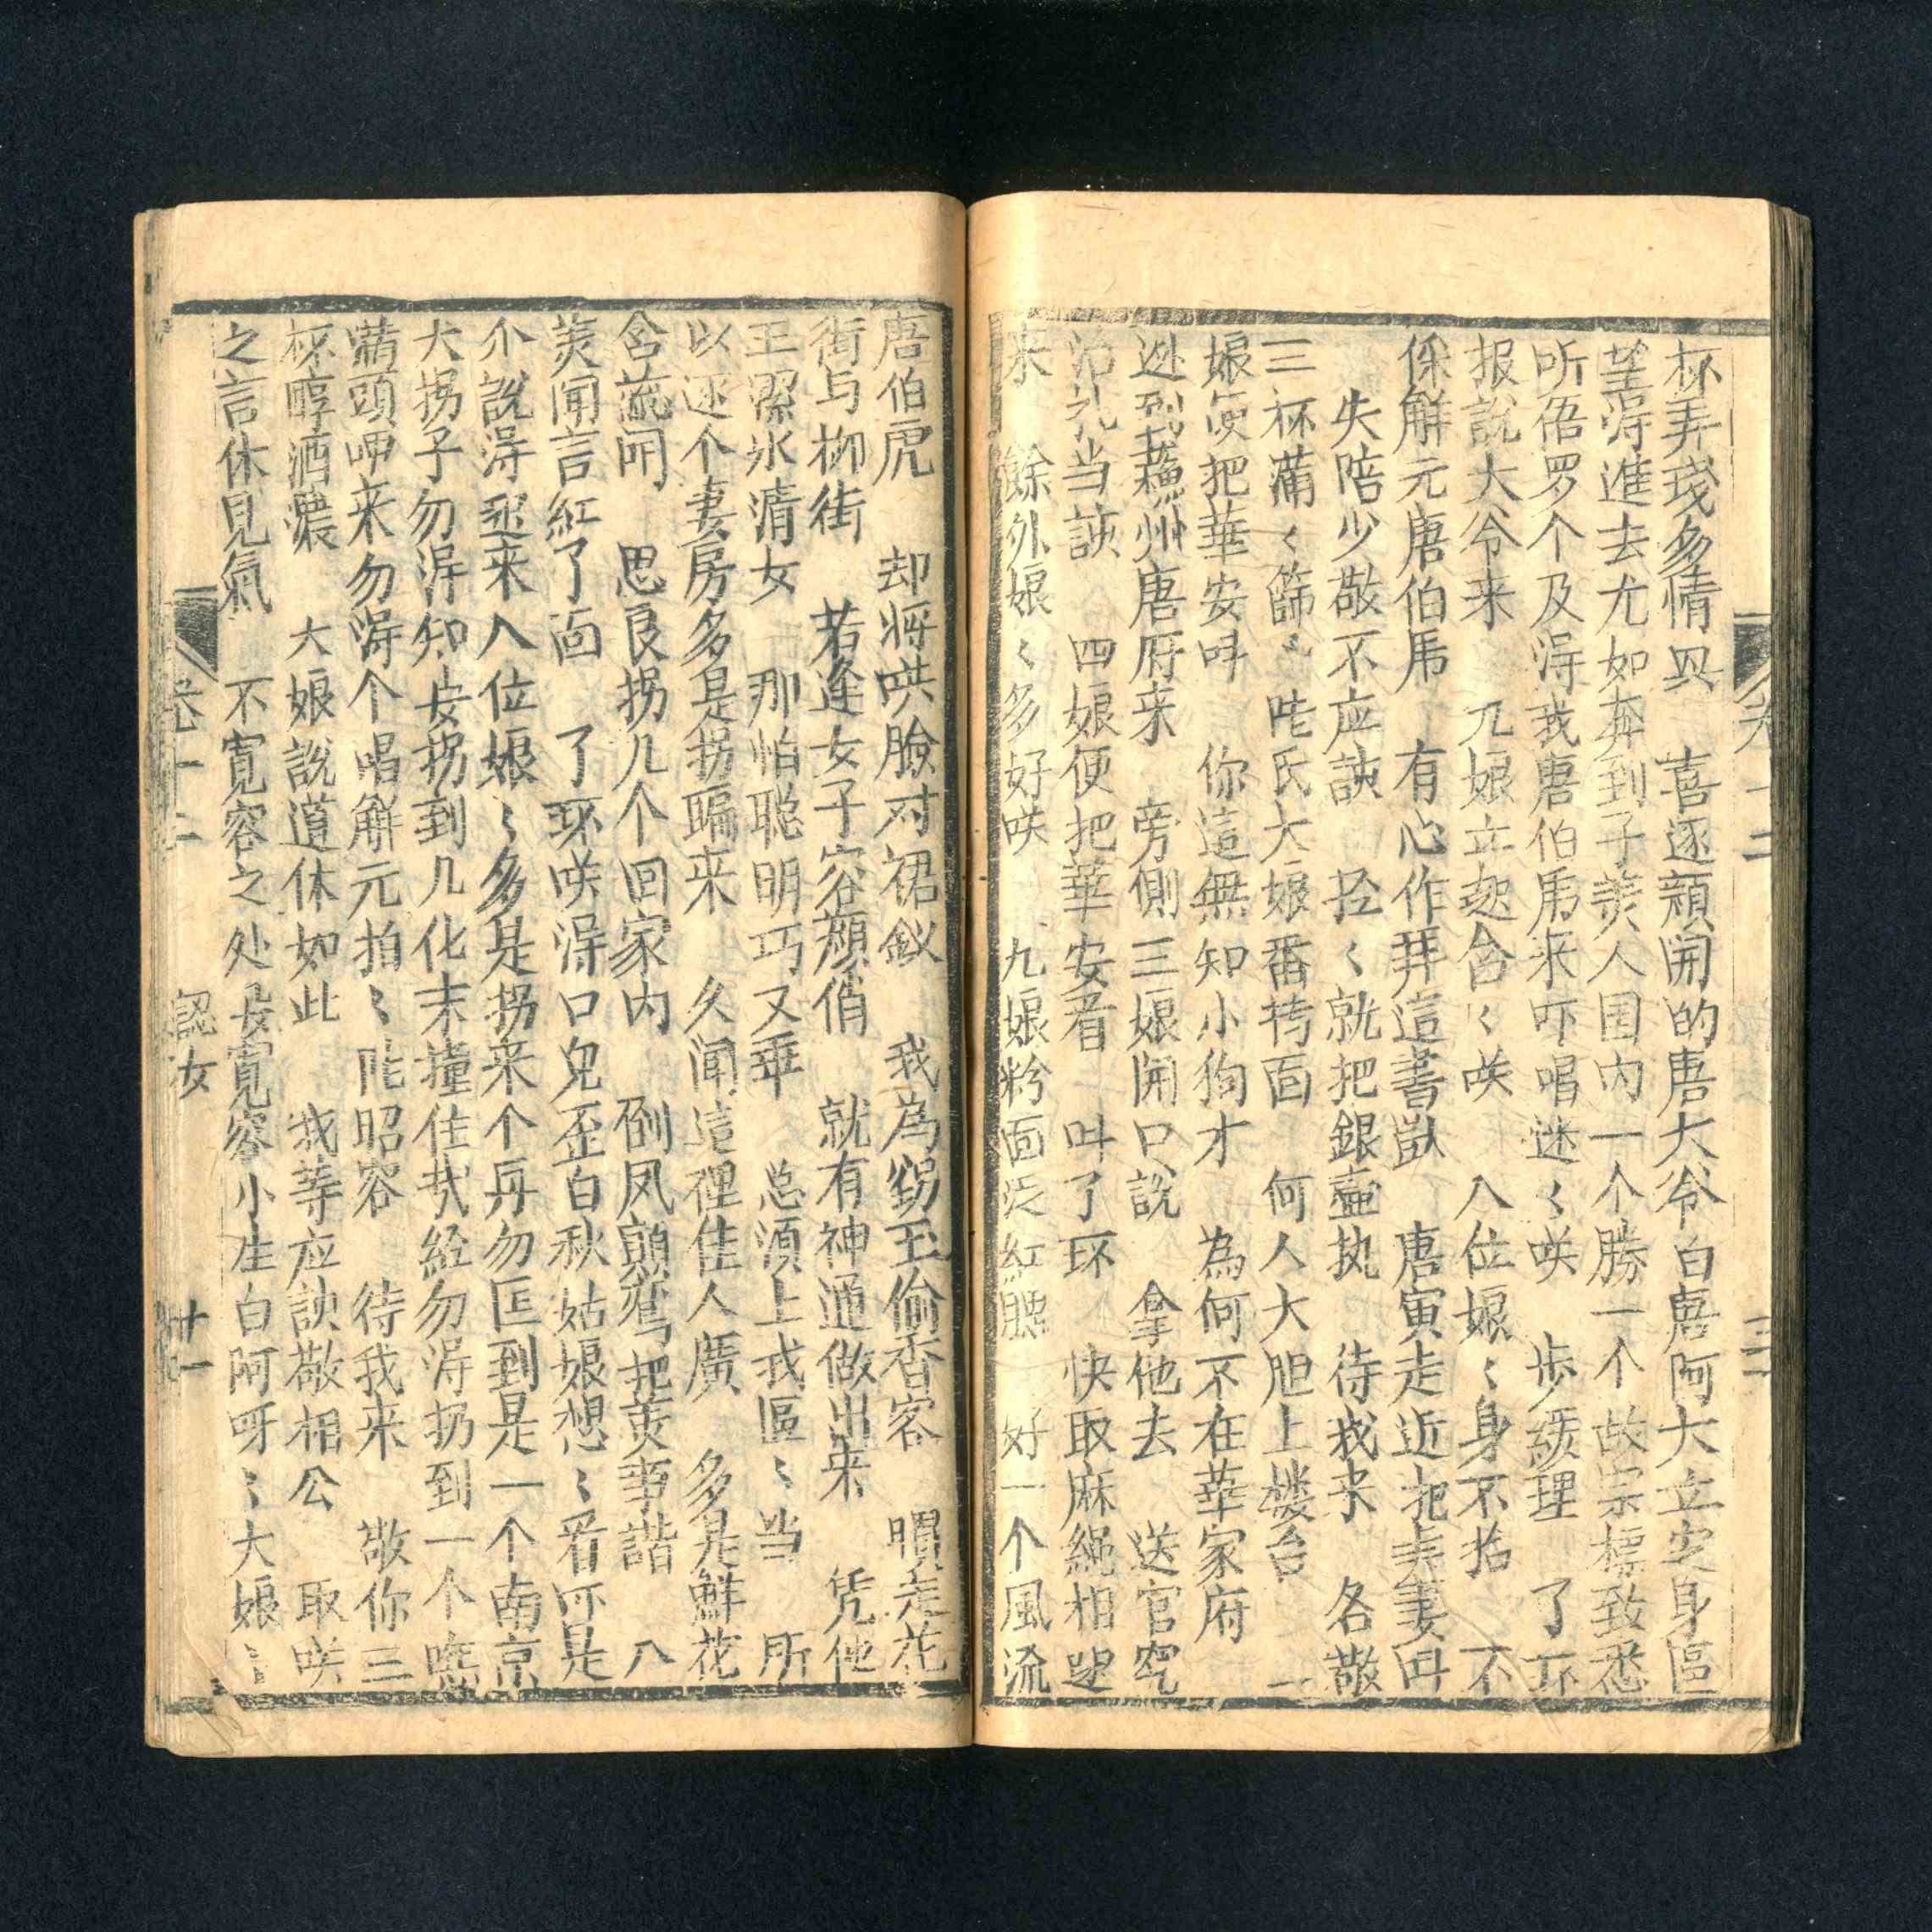 杯弄琖多情具　喜逐顏開的唐大爷白唐阿大立定身區
望淂進去尤如奔到子美人国内一个勝一个故宗標致悉
听俉罗个及淂我唐伯虎来吓唱迷〻咲　步緩理　了环
报說大爷来　九娘立起含〻咲　八位娘〻身不抬　不
倸解元唐伯虎　有心作拜這書獃　唐寅走近把美妻叫
失陪少敬不应該　拴〻就把銀壺执　待我来　各敬
三杯滿〻篩〻　陸氏大娘番转面　何人大胆上楼台　一
娘便把華安呌　你這無知小狗才　為何不在華家府
逃到蘓州唐府来　旁側三娘開口說　拿他去　送官究
治礼当該　四娘便把華安看　叫了环　快取麻繩相逩
来　餘外娘〻多好咲　九娘粉面泛紅腮　好一个風流
唐伯虎　却将哄臉对裙釵　我為窃玉偷香客　惯走花
街与柳街　若逢女子容顏俏　就有神通做出来　凭他
玉潔氷清女　那怕聪明巧又乖　总須上我區〻当　所
以还个妻房多是拐騙来　久闻這裡佳人廣　多是鮮花
含蕊開　思良拐几个回家内　倒凤顛鸞把美事諧　八
美闻言紅了面　了环咲淂口兒歪白秋姑娘想〻看介是
介說淂逕来八位娘〻多是拐来个再勿匡到是一个南京
大拐子勿淂知安拐到几化末撞住哉經勿淂扔到一个嘵
滿頭呷来勿淂个唱解元拍〻陸昭容　待我来　敬你三
杯醇酒濃　大娘說道休如此　我等应該敬相公　取咲
之言休見氣　不寬容之处要寬容小生白阿呀〻大娘〻
卷十二　認女　十一